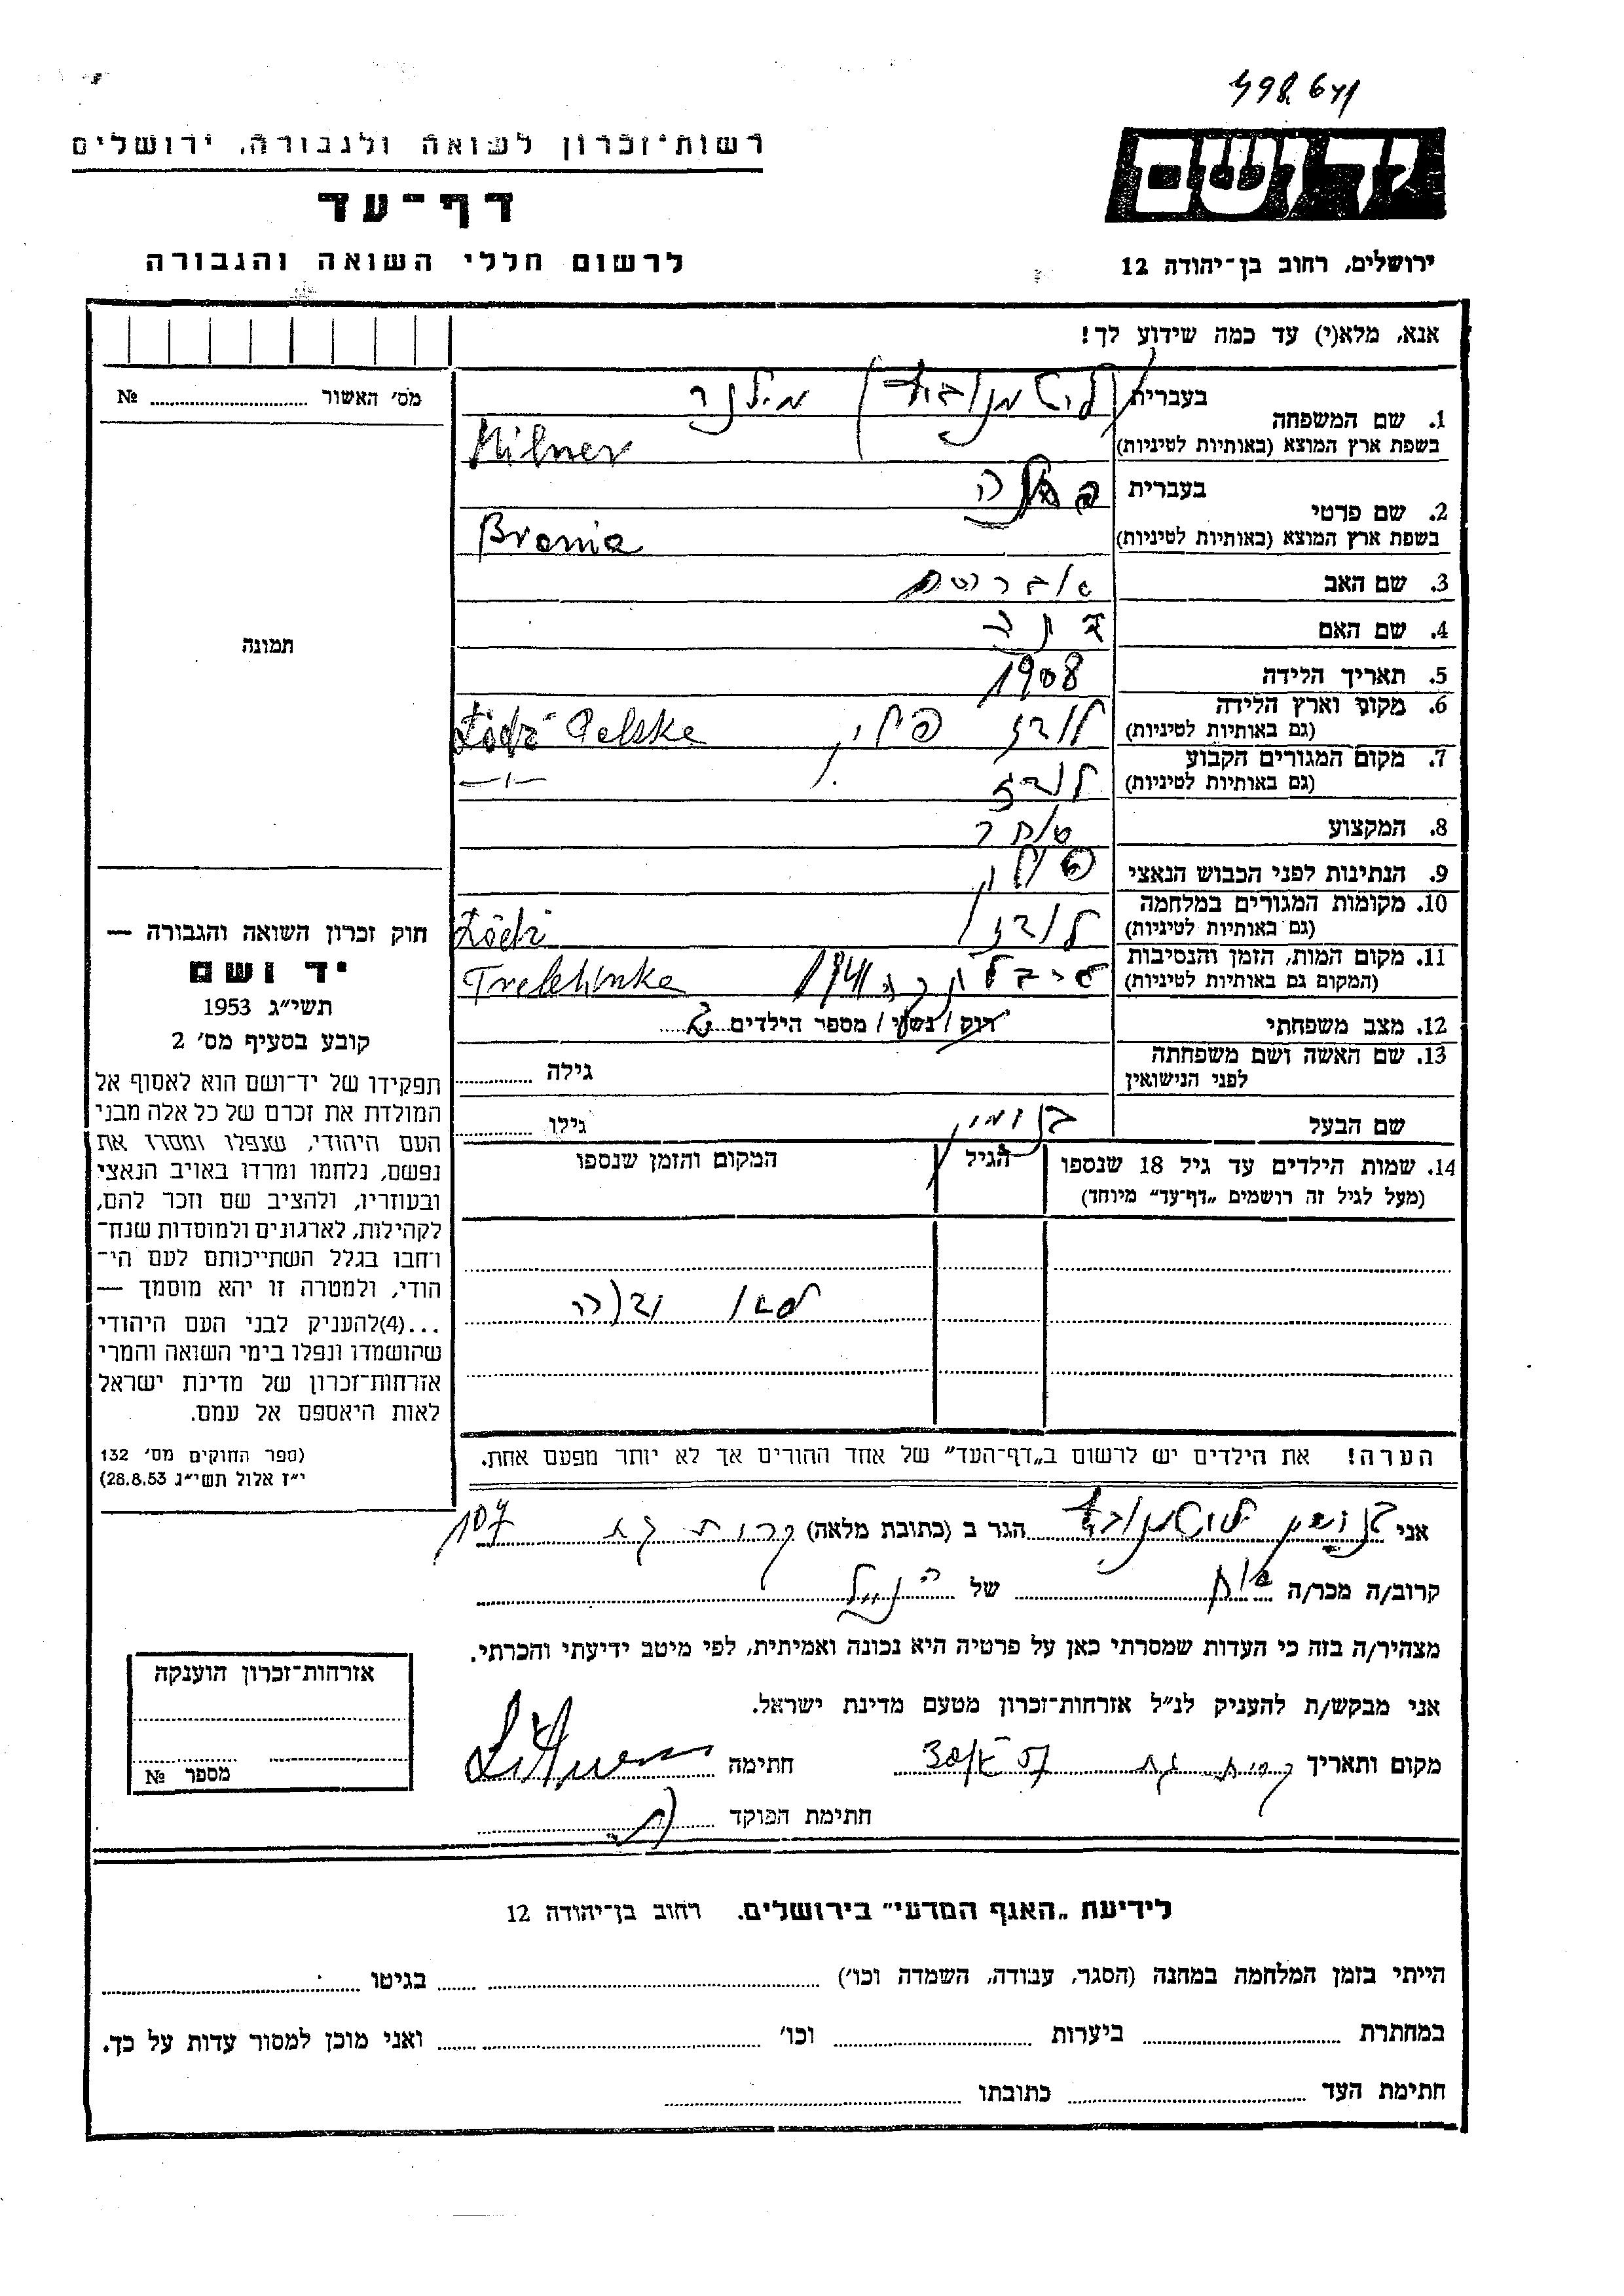 498.641
רשות־זכרון לשואה ולגבורה, ירושלים
דף־עד
לרשום חללי השואה והגבורה
יד ושם
ירושלים, רחוב בן־יהודה 12
אנא, מלא(י) עד כמה שידוע לך!
מס׳ האשור № 
1. שם המשפחה בעברית מילנר
בשפת ארץ המוצא (באותיות לטיניות) Milner
2. שם פרטי בעברית
בשפת ארץ המוצא (באותיות לטיניות) Bronia
3. שם האב
4. שם האם
5. תאריך הלידה 1908
6. מקום וארץ הלידה (גם באותיות לטיניות) לודז פולין Łódź Polska
7. מקום המגורים הקבוע (גם באותיות לטיניות) לודז —״—
8. המקצוע סוחר
9. הנתינות לפני הכבוש הנאצי פולין
10. מקומות המגורים במלחמה (גם באותיות לטיניות) לודז Łódź
11. מקום המות, הזמן והנסיבות (המקום גם באותיות לטיניות) 1941 Treblinka
12. מצב משפחתי רווק / נשוי / מספר הילדים 2
13. שם האשה ושם משפחתה לפני הנישואין גילה
שם הבעל גילו
14. שמות הילדים עד גיל 18 שנספו (מעל לגיל זה רושמים „דף־עד״ מיוחד) הגיל המקום והזמן שנספו
תמונה
חוק זכרון השואה והגבורה —
יד ושם
תשי״ג 1953
קובע בסעיף מס׳ 2
תפקידו של יד־ושם הוא לאסוף אל
המולדת את זכרם של כל אלה מבני
העם היהודי, שנפלו ומסרו את
נפשם, נלחמו ומרדו באויב הנאצי
ובעוזריו, ולהציב שם וזכר להם,
לקהילות, לארגונים ולמוסדות שנח־
רחבו בגלל השתייכותם לעם הי־
הודי, ולמטרה זו יהא מוסמך —
...(4)להעניק לבני העם היהודי
שהושמדו ונפלו בימי השואה והמרי
אזרחות־זכרון של מדינת ישראל
לאות היאספם אל עמם.
(ספר החוקים מס׳ 132
י״ז אלול תשי״ג 28.8.53)
הערה! את הילדים יש לרשום ב„דף־העד״ של אחד ההורים אך לא יותר מפעם אחת.
אני הגר ב (כתובת מלאה) קרית גת 107
קרוב/ה מכר/ה של הנ״ל
מצהיר/ה בזה כי העדות שמסרתי כאן על פרטיה היא נכונה ואמיתית, לפי מיטב ידיעתי והכרתי.
אני מבקש/ת להעניק לנ״ל אזרחות־זכרון מטעם מדינת ישראל.
מקום ותאריך קרית גת חתימה
חתימת הפוקד
אזרחות־זכרון הוענקה
מספר №
לידיעת „האגף המדעי״ בירושלים. רחוב בן־יהודה 12
הייתי בזמן המלחמה במחנה (הסגר, עבודה, השמדה וכו׳) בגיטו
במחתרת ביערות וכו׳ ואני מוכן למסור עדות על כך.
חתימת העד כתובתו